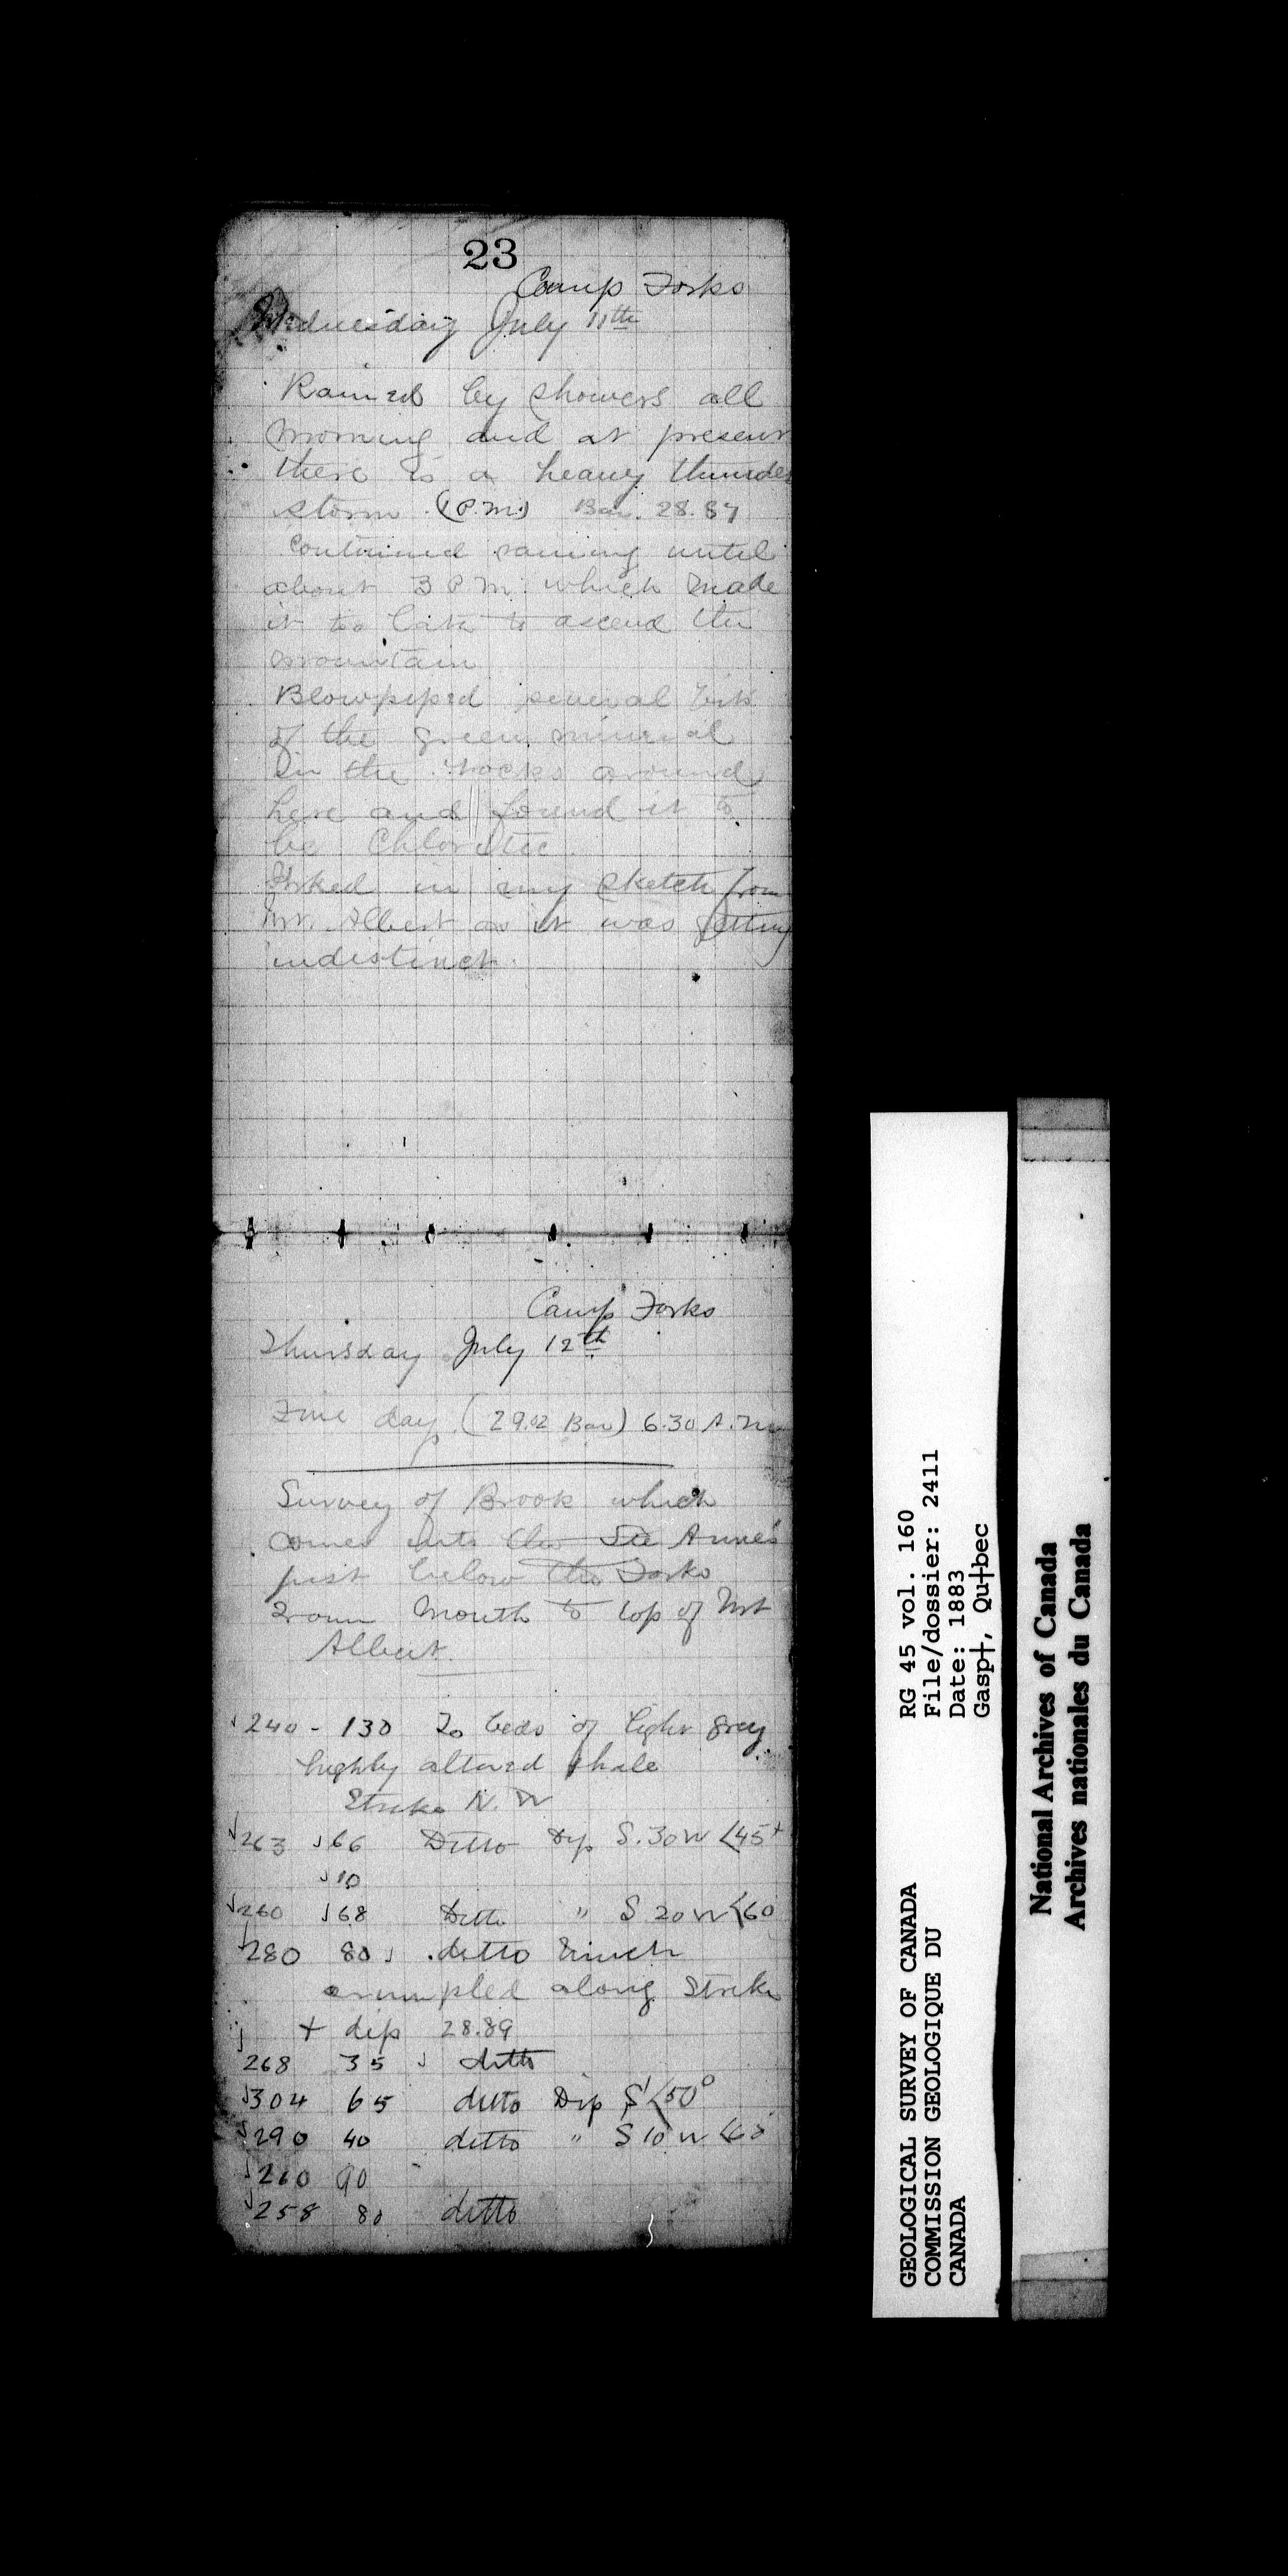 23
Camp Forks
Wednesday July 11th
Rained by showers all
morning and at present
there is a heavy thunder
storm (1 P.M.) Bar. 28.87
Contained raining until
about 3 P.M. which made
it too late to ascend the
mountain
Blowpiped several bits
of the green mineral
in the rocks around
here and found it to
be Chloritic.
Inked in my sketch from
Mt. Albert as it was getting
indistinct.
Camp Forks
Thursday July 12th
Fine day (29.02 Bar) 6.30 A.M.
Survey of Brook which
comes into the Ste Anne's
just below the Forks
From Mouth to top of Mt
Albert.
240 - 130 To beds of light grey
highly altered shale
Strike N. W
263 66 Ditto Dip S. 30 W <45+
10
260 68 Ditto " S. 20 W <60
280 80 ditto much
crumpled along Strike
+ dip 28.89
268 35 ditto
304 65 ditto Dip S <50°
290 40 ditto " S 10 W
260 90
258 80 ditto
RG 45 vol. 160
File/dossier: 2411
Date: 1883
Gasp†, Qu†bec
GEOLOGICAL SURVEY OF CANADA
COMMISSION GEOLOGIQUE DU
CANADA
National Archives of Canada
Archives nationales du Canada